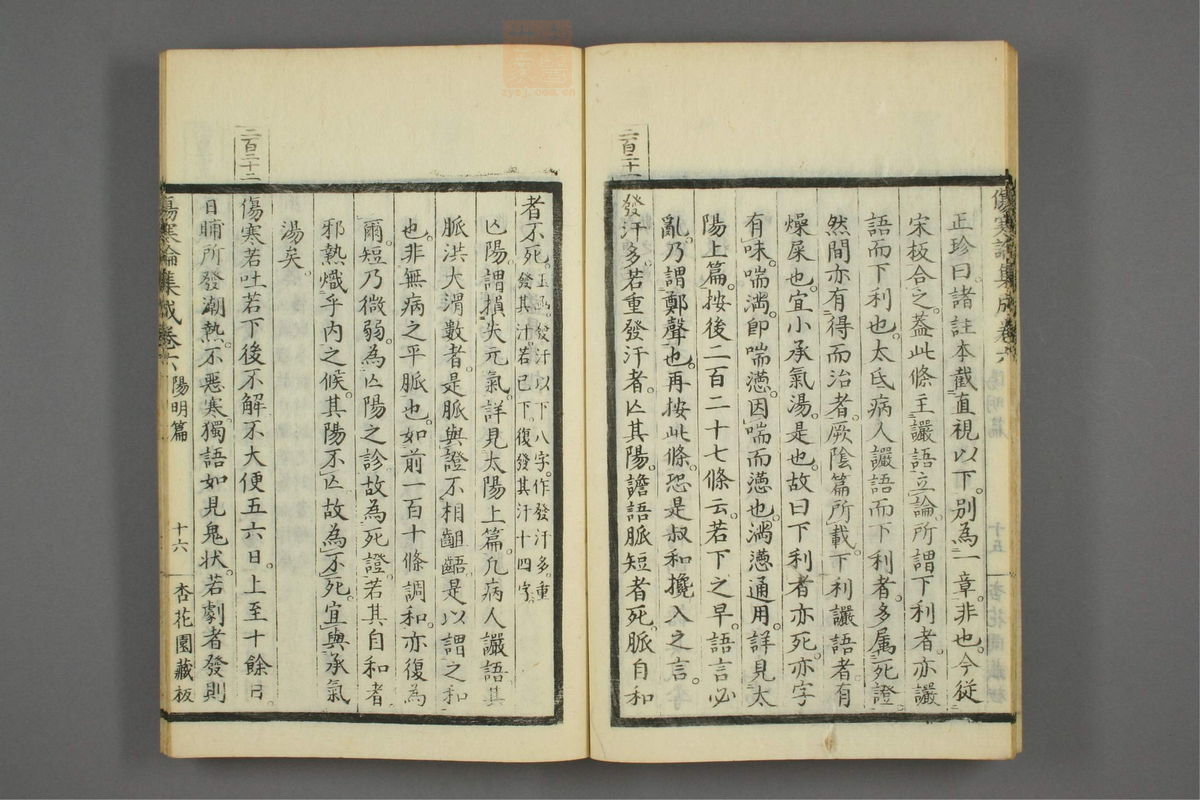 正珍曰。諸註本截直視以下。別為一章。非也。今從
宋板合之。蓋此條主讝語立論。所謂下利者。亦讝
語而下利也。太氐病人讝語而下利者。多属死證。
然間亦有得而治者。厥陰篇所載。下利讝語者。有
燥屎也。宜小承氣湯。是也。故曰下利者亦死。亦字
有味。喘満。即喘懣。因喘而懣也。満懣通用。詳見太
陽上篇。按後二百二十七條云。若下之早。語言必
亂。乃謂鄭聲也。再按此條。恐是叔和攙入之言。
二百二十一
發汗多。若重發汗者。亾其陽。譫語脈短者死。脈自和
傷寒論集成卷六
陽明篇
十五
杏花園藏板
者不死。玉函。發汗以下八字。作發汗多。重
發其汗。若已下。復發其汗十四字
亾陽。謂損失元氣。詳見太陽上篇。凢病人讝語。其
脈洪大滑數者。是脈與證不相齟齬。是以謂之和
也。非無病之平脈也。如前一百十條調和。亦復為
爾。短乃微弱。為亾陽之診。故為死證。若其自和者
邪熱熾乎内之候。其陽不亾。故為不死。宜與承氣
湯矣。
二百二十二
傷寒若吐若下後不解。不大便五六日。上至十餘日。
日晡所發潮熱。不悪寒。獨語如見鬼状。若劇者發則
傷寒論集成卷六
陽明篇
十六
杏花園藏板